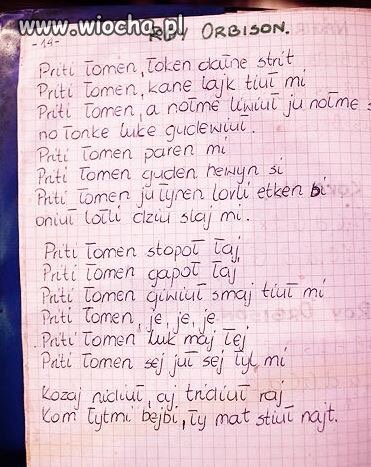 www.wiocha.pl
ROY ORBISON.
-14-
Priti Łomen, Łoken dałne strit
Priti Łomen, kane łajk tiuł mi
Priti Łomen, a nołme liwiuł ju nołme s
no Łonke luke gudewiuł.
Priti Łomen paren mi
Priti Łomen guden hewyn si
Priti Łomen ju tyren lovli etken bi
oniuł lotli dziu słaj mi.
Priti Łomen stopoł Łaj
Priti Łomen gapoł Łaj
Priti Łomen giwiuł smaj tiuł mi
Priti Łomen, je, je, je
Priti Łomen luk maj Łej
Priti Łomen sej juł sej Łyl mi
Kozaj nidiuł, aj tridiuł raj
Kom Łytmi bejbi, Ły mat stiuł najt.